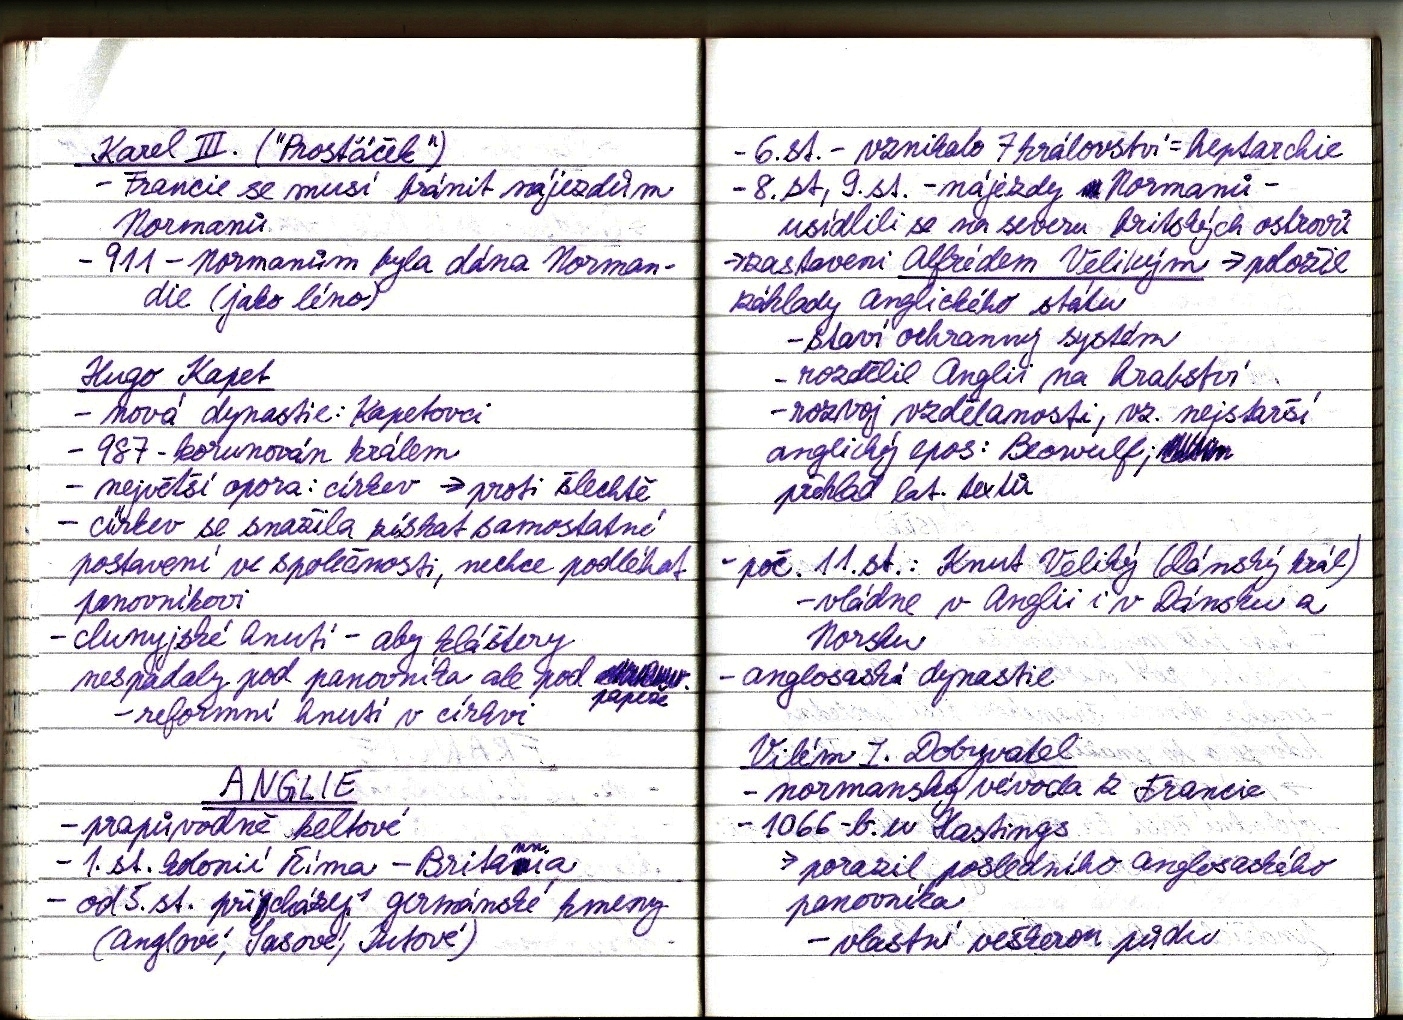 Karel III. ("Prostáček")
- Francie se musí bránit nájezdům
Normanů
- 911 - Normanům byla dána Norman-
die (jako léno)
Hugo Kapet
- nová dynastie: Kapetovci
- 987 - korunován králem
- největší opora: církev → proti šlechtě
- církev se snažila získat samostatné
postavení ve společnosti, nechce podléhat
panovníkovi
- clunyjské hnutí - aby kláštery
nespadaly pod panovníka ale pod
papeže
- reformní hnutí v církvi
ANGLIE
- prapůvodně keltové
- 1. st. kolonií Říma - Británnia
- od 5. st. přicházejí germánské kmeny
(Anglové, Sasové, Jutové)
- 6. st. - vznikalo 7 království = heptarchie
- 8. st, 9. st. - nájezdy Normanů -
usídlili se na severu britských ostrovů
→ zastaveni Alfrédem Velikým → položil
základy Anglického státu
- staví ochranný systém
- rozdělil Anglii na hrabství
- rozvoj vzdělanosti, vz. nejstarší
anglický epos: Beowulf;
překlad lat. textů
- poč. 11. st.: Knut Veliký (Dánský král)
- vládne v Anglii i v Dánsku a
Norsku
- anglosaská dynastie
Vilém I. Dobyvatel
- normanský vévoda z Francie
- 1066 - b. u Hastings
→ porazil posledního anglosaského
panovníka
- vlastní veškerou půdu